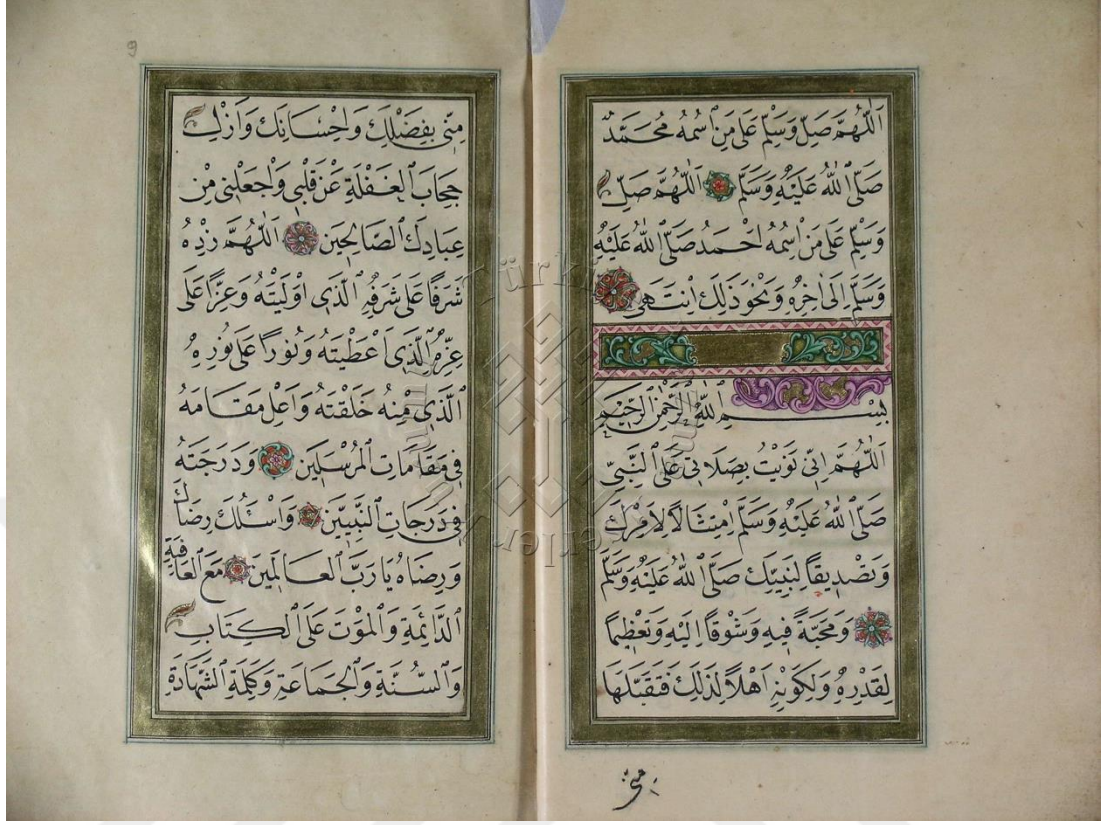 اَللّٰهُمَّ صَلِّ وَسَلِّمْ عَلٰى مَنِ اسْمُهُ مُحَمَّدٌ
صَلَّى اللّٰهُ عَلَيْهِ وَسَلَّمَ اَللّٰهُمَّ صَلِّ
وَسَلِّمْ عَلٰى مَنِ اسْمُهُ اَحْمَدُ صَلَّى اللّٰهُ عَلَيْهِ
وَسَلَّمَ اِلٰى اٰخِرِهِ وَنَحْوَ ذٰلِكَ اِنْتَهٰى
بِسْمِ اللّٰهِ الرَّحْمٰنِ الرَّحِيمِ
اَللّٰهُمَّ اِنِّى نَوَيْتُ بِصَلَاتِى عَلَى النَّبِيِّ
صَلَّى اللّٰهُ عَلَيْهِ وَسَلَّمَ اِمْتِثَالًا لِاَمْرِكَ
وَتَصْدِيقًا لِنَبِيِّكَ صَلَّى اللّٰهُ عَلَيْهِ وَسَلَّمَ
وَمَحَبَّةً فِيهِ وَشَوْقًا اِلَيْهِ وَتَعْظِيمًا
لِقَدْرِهِ وَلِكَوْنِهِ اَهْلًا لِذٰلِكَ فَتَقَبَّلْهَا
مِنِّى
9
مِنِّى بِفَضْلِكَ وَاِحْسَانِكَ وَاَزِلْ
حِجَابَ الْغَفْلَةِ عَنْ قَلْبِى وَاجْعَلْنِى مِنْ
عِبَادِكَ الصَّالِحِينَ اَللّٰهُمَّ زِدْهُ
شَرَفًا عَلٰى شَرَفِهِ الَّذِى اَوْلَيْتَهُ وَعِزًّا عَلٰى
عِزِّهِ الَّذِى اَعْطَيْتَهُ وَنُورًا عَلٰى نُورِهِ
الَّذِى مِنْهُ خَلَقْتَهُ وَاَعْلِ مَقَامَهُ
فِى مَقَامَاتِ الْمُرْسَلِينَ وَدَرَجَتَهُ
فِى دَرَجَاتِ النَّبِيِّينَ وَاَسْئَلُكَ رِضَاكَ
وَرِضَاهُ يَا رَبَّ الْعَالَمِينَ مَعَ الْعَافِيَةِ
الدَّائِمَةِ وَالْمَوْتَ عَلَى الْكِتَابِ
وَالسُّنَّةِ وَالْجَمَاعَةِ وَكَلِمَةِ الشَّهَادَةِ